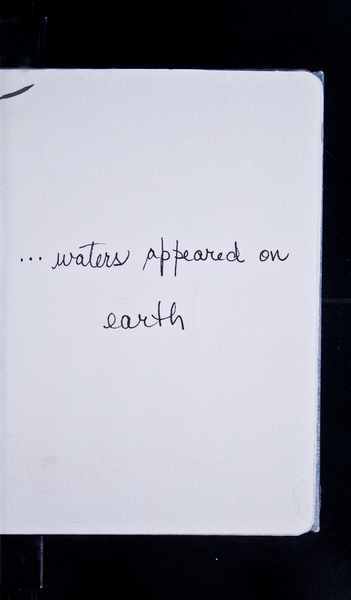 ... waters appeared on
earth